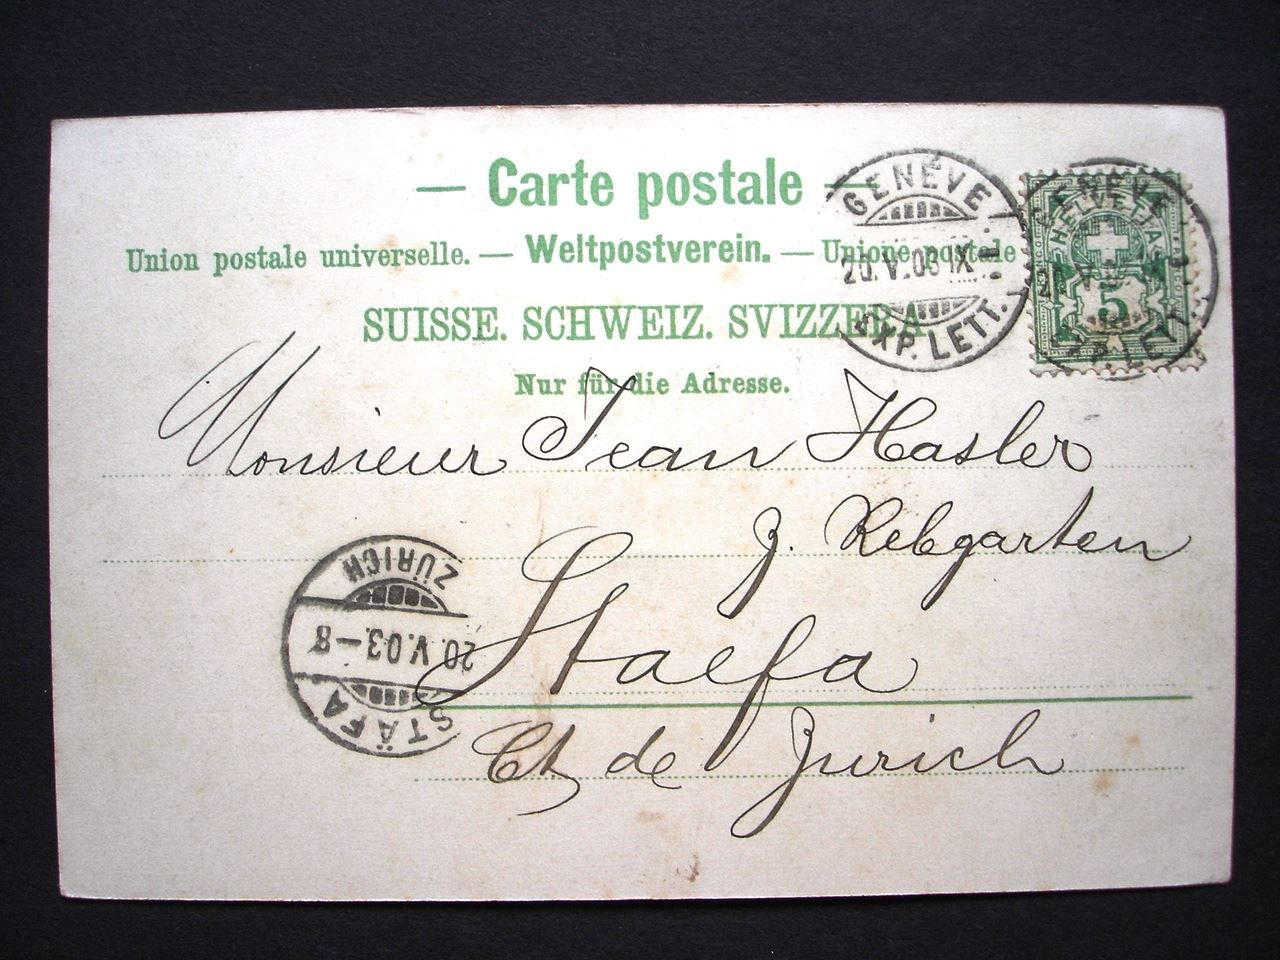 — Carte postale —
Union postale universelle. — Weltpostverein. — Unione postale
SUISSE. SCHWEIZ. SVIZZERA
Nur für die Adresse.
GENÈVE
20.V.03 IX
EXP. LETT.
GENÈVE
EXP. LETT.
HELVETIA
5
Monsieur Jean Hasler
z. Rebgarten
Staefa
Ct de Zurich
ZÜRICH
20.V.03.–8
STÄFA